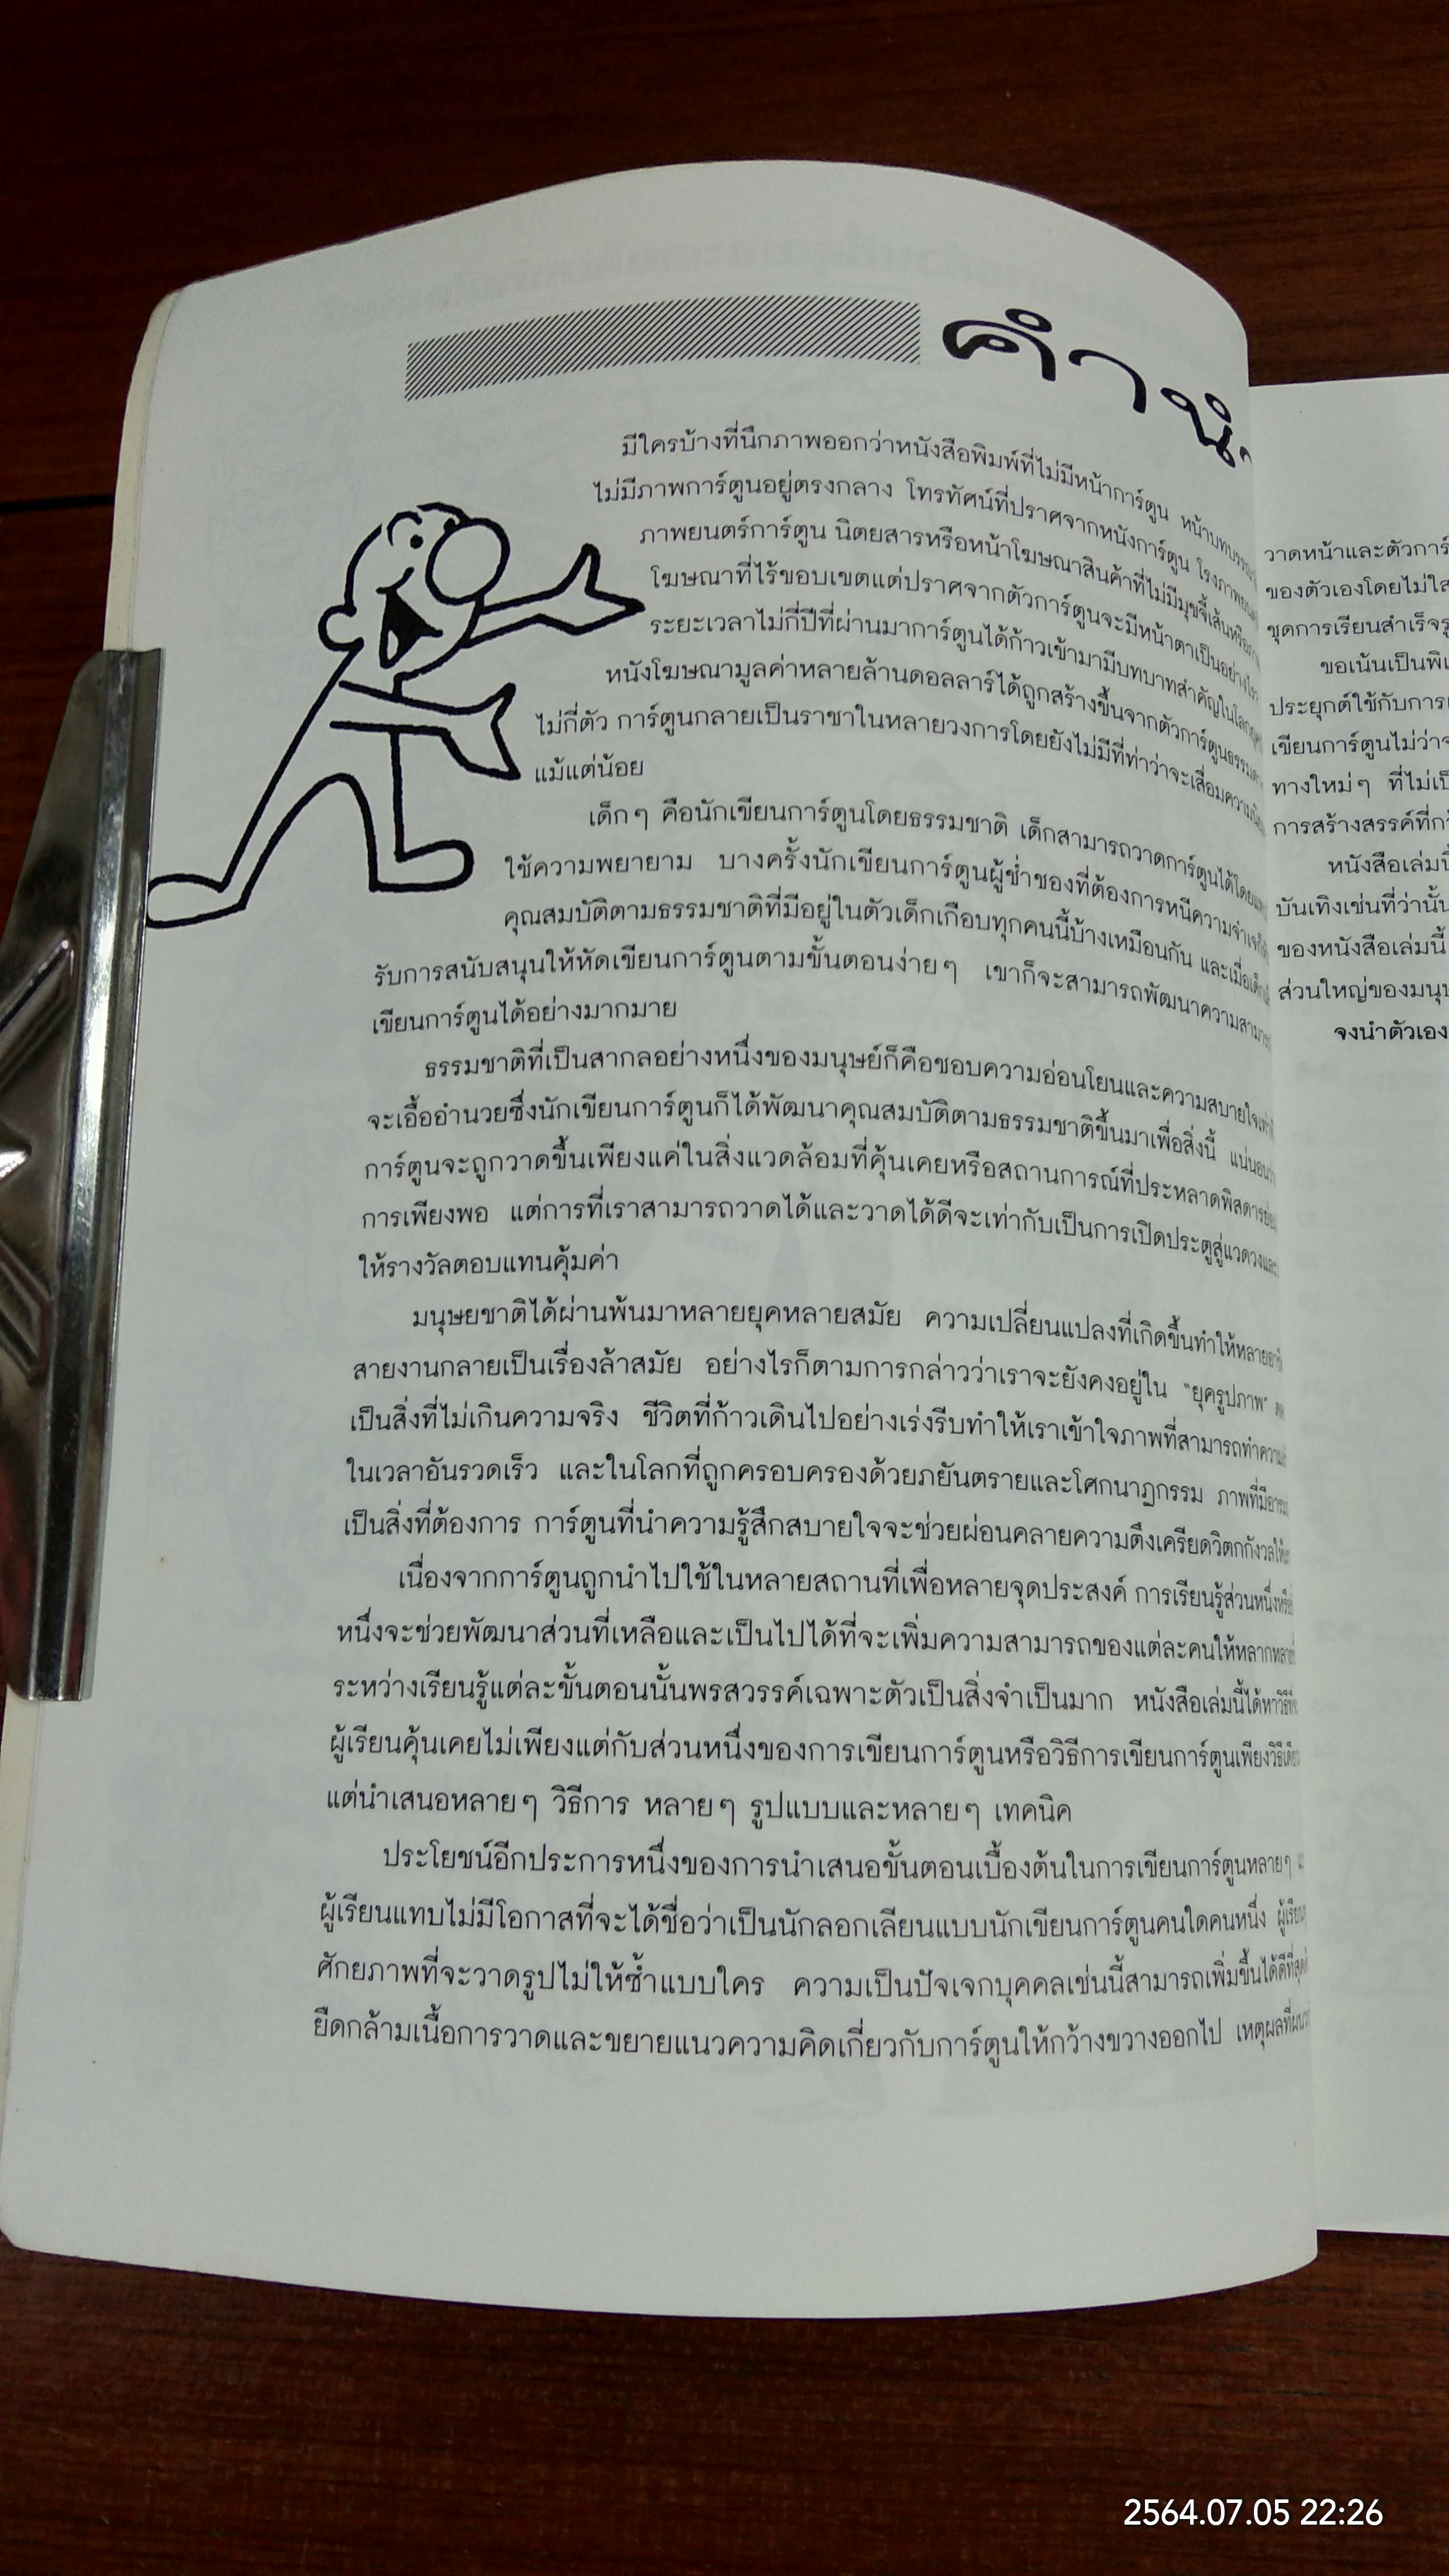 คำนิ
มีใครบ้างที่นึกภาพออกว่าหนังสือพิมพ์ที่ไม่มีหน้าการ์ตูน
ไม่มีภาพการ์ตูนอยู่ตรงกลาง โทรทัศน์ที่ปราศจากหนังการ์ตูน
ภาพยนตร์การ์ตูน นิตยสารหรือหน้าโฆษณาสินค้าที่ไม่มีมุขขี้เล่น
โฆษณาที่ไร้ขอบเขตแต่ปราศจากตัวการ์ตูนจะมีหน้าตาเป็นอย่างไร
ระยะเวลาไม่กี่ปีที่ผ่านมาการ์ตูนได้ก้าวเข้ามามีบทบาทสำคัญใน
หนังโฆษณามูลค่าหลายล้านดอลลาร์ได้ถูกสร้างขึ้นจากตัวการ์ตูน
ไม่กี่ตัว การ์ตูนกลายเป็นราชาในหลายวงการโดยยังไม่มีที่ท่าว่าจะเสื่อม
แม้แต่น้อย
เด็กๆ คือนักเขียนการ์ตูนโดยธรรมชาติ เด็กสามารถวาดการ์ตูนได้โดย
ใช้ความพยายาม บางครั้งนักเขียนการ์ตูนผู้ช่ำชองที่ต้องการหนีความจำเจ
คุณสมบัติตามธรรมชาติที่มีอยู่ในตัวเด็กเกือบทุกคนนี้บ้างเหมือนกัน และเมื่อ
รับการสนับสนุนให้หัดเขียนการ์ตูนตามขั้นตอนง่ายๆ เขาก็จะสามารถพัฒนาความ
เขียนการ์ตูนได้อย่างมากมาย
ธรรมชาติที่เป็นสากลอย่างหนึ่งของมนุษย์ก็คือชอบความอ่อนโยนและความสบายใจ
จะเอื้ออำนวยซึ่งนักเขียนการ์ตูนก็ได้พัฒนาคุณสมบัติตามธรรมชาติขึ้นมาเพื่อสิ่งนี้
การ์ตูนจะถูกวาดขึ้นเพียงแค่ในสิ่งแวดล้อมที่คุ้นเคยหรือสถานการณ์ที่ประหลาดพิสดาร
การเพียงพอ แต่การที่เราสามารถวาดได้และวาดได้ดีจะเท่ากับเป็นการเปิดประตูสู่แวดวง
ให้รางวัลตอบแทนคุ้มค่า
มนุษยชาติได้ผ่านพ้นมาหลายยุคหลายสมัย ความเปลี่ยนแปลงที่เกิดขึ้นทำให้หลาย
สายงานกลายเป็นเรื่องล้าสมัย อย่างไรก็ตามการกล่าวว่าเราจะยังคงอยู่ใน "ยุครูปภาพ"
เป็นสิ่งที่ไม่เกินความจริง ชีวิตที่ก้าวเดินไปอย่างเร่งรีบทำให้เราเข้าใจภาพที่สามารถทำความ
ในเวลาอันรวดเร็ว และในโลกที่ถูกครอบครองด้วยภยันตรายและโศกนาฏกรรม ภาพที่มี
เป็นสิ่งที่ต้องการ การ์ตูนที่นำความรู้สึกสบายใจจะช่วยผ่อนคลายความตึงเครียดวิตกกังวล
เนื่องจากการ์ตูนถูกนำไปใช้ในหลายสถานที่เพื่อหลายจุดประสงค์ การเรียนรู้ส่วนหนึ่ง
หนึ่งจะช่วยพัฒนาส่วนที่เหลือและเป็นไปได้ที่จะเพิ่มความสามารถของแต่ละคนให้หลากหลาย
ระหว่างเรียนรู้แต่ละขั้นตอนนั้นพรสวรรค์เฉพาะตัวเป็นสิ่งจำเป็นมาก หนังสือเล่มนี้ได้หาวิธี
ผู้เรียนคุ้นเคยไม่เพียงแต่กับส่วนหนึ่งของการเขียนการ์ตูนหรือวิธีการเขียนการ์ตูนเพียงวิธี
แต่นำเสนอหลายๆ วิธีการ หลายๆ รูปแบบและหลายๆ เทคนิค
ประโยชน์อีกประการหนึ่งของการนำเสนอขั้นตอนเบื้องต้นในการเขียนการ์ตูนหลายๆ
ผู้เรียนแทบไม่มีโอกาสที่จะได้ชื่อว่าเป็นนักลอกเลียนแบบนักเขียนการ์ตูนคนใดคนหนึ่ง
ศักยภาพที่จะวาดรูปไม่ให้ซ้ำแบบใคร ความเป็นปัจเจกบุคคลเช่นนี้สามารถเพิ่มขึ้นได้ดีที่สุด
ยืดกล้ามเนื้อการวาดและขยายแนวความคิดเกี่ยวกับการ์ตูนให้กว้างขวางออกไป เหตุผลที่
วาดหน้าและตัวการ์
ของตัวเองโดยไม่ใส
ชุดการเรียนสำเร็จรู
ขอเน้นเป็นพิเ
ประยุกต์ใช้กับการเ
เขียนการ์ตูนไม่ว่าจ
ทางใหม่ๆ ที่ไม่เป็
การสร้างสรรค์ที่ก
หนังสือเล่มนี้
บันเทิงเช่นที่ว่านั้น
ของหนังสือเล่มนี้
ส่วนใหญ่ของมนุษ
จงนำตัวเอง
2564.07.05 22:26